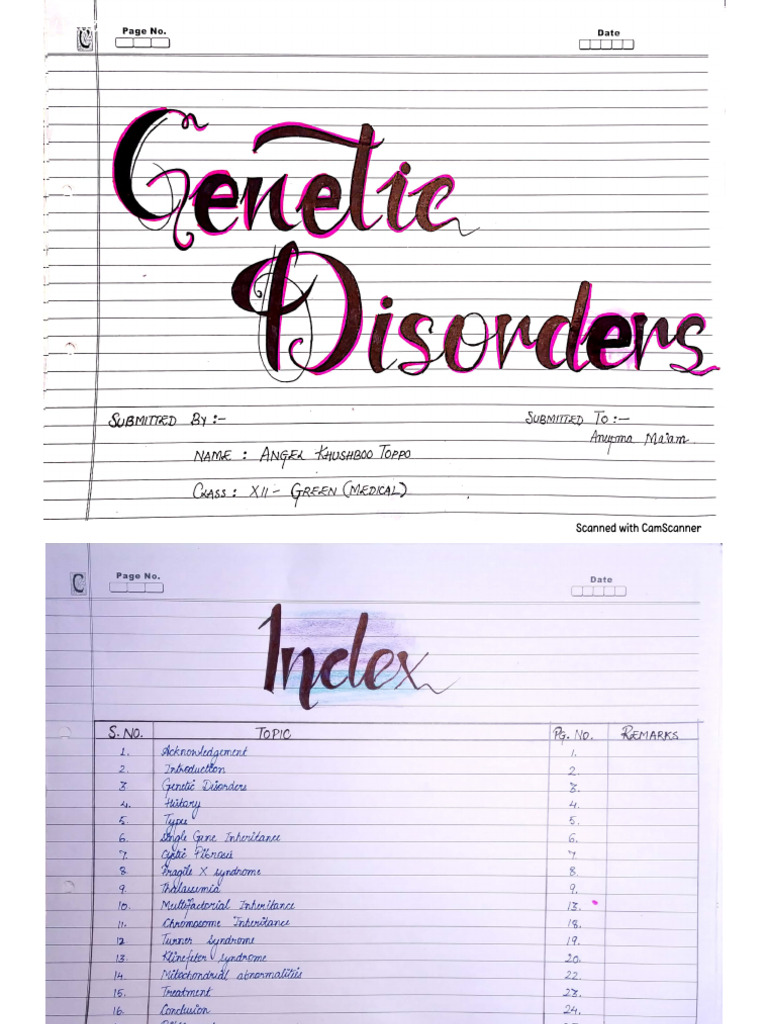 C
Page No.
Date
Genetic
Disorders
SUBMITTED BY :-
SUBMITTED TO :-
Anupma Ma'am
NAME : ANGEL KHUSHBOO TOPPO
CLASS : XII - GREEN (MEDICAL)
Scanned with CamScanner
C
Page No.
Date
Index
S. NO. TOPIC PG. NO. REMARKS
1. Acknowledgement 1.
2. Introduction 2.
3 Genetic Disorders 3.
4. History 4.
5. Types 5.
6. Single Gene Inheritance 6.
7. Cystic Fibrosis 7.
8. Fragile X syndrome 8.
9. Thalassemia 9.
10. Multifactorial Inheritance 13.
11. Chromosome Inheritance 18.
12 Turner syndrome 19.
13. Klinefelter syndrome 20.
14. Mitochondrial abnormalities 22.
15. Treatment 23.
16. Conclusion 24.